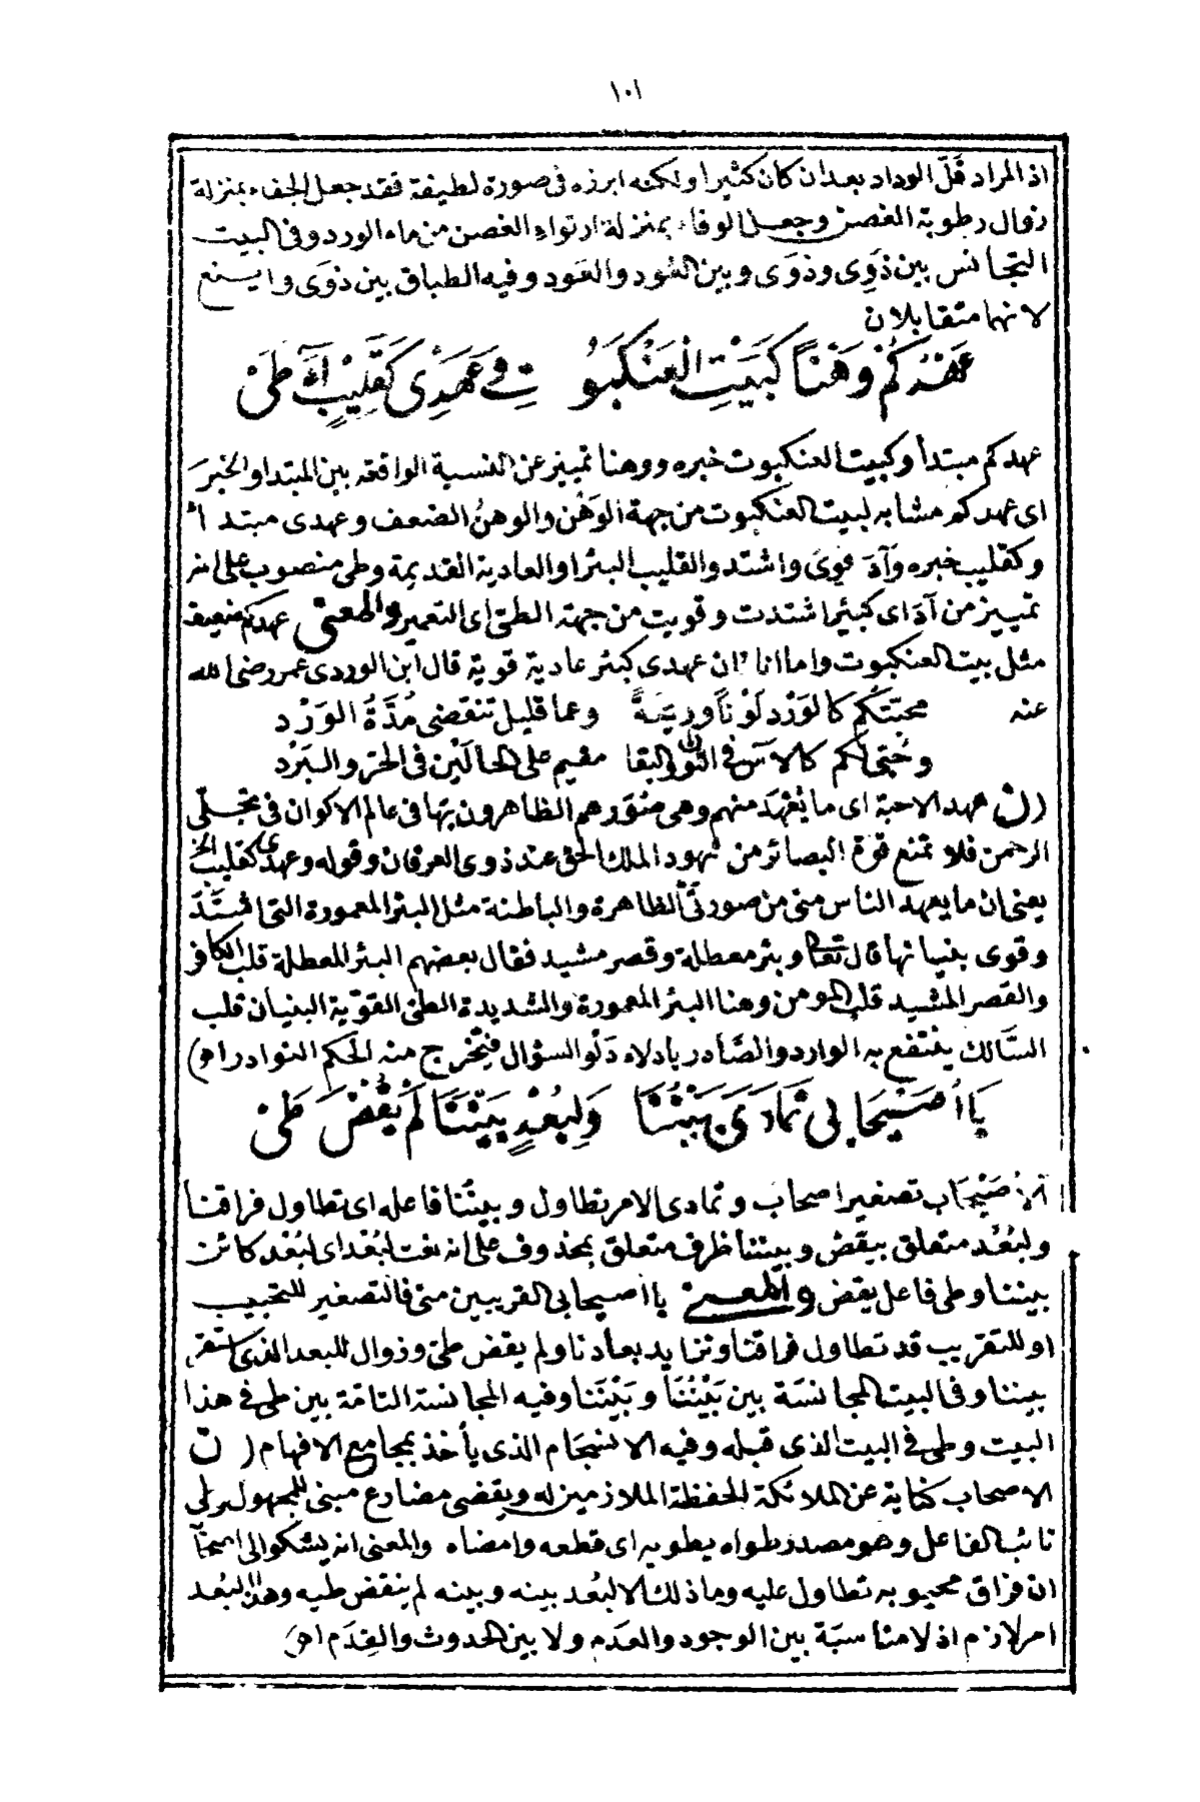 ١٠١
اذ المراد قَلَّ الوداد بعد ان كان كثيرا ولكنه ابرزه فى صورة لطيفة فقد جعل الجفاء بمنزلة
زوال رطوبة الغصن وجعل الوفاء بمنزلة ارتواء الغصن من ماء الورد وفى البيت
التجانس بين ذَوِى وذوَى وبين العُود والعَود وفيه الطباق بين ذوَى واينع
لانهما متقابلان
عَهْدُكُمْ وَهْناً كَبَيْتِ الْعَنْكَبُو تِ وَعَهْدِى كَقَلِيْبٍ آدَ طَىْ
عهدكم مبتدأ وكبيت العنكبوت خبره ووهنا تمييز عن النسبة الواقعة بين المبتدا والخبر
اى عهدكم مشابه لبيت العنكبوت من جهة الوَهْن والوهنُ الضعف وعهدى مبتدأ
وكقليب خبره وآدَ قوِىَ واشتد والقليب البئر او العادية القديمة وطى منصوب على انه
تمييز من آدَ اى كبئر اشتدت وقويت من جهة الطىّ اى التعمير والمعنى عهدكم ضعيف
مثل بيت العنكبوت واما انا فان عهدى كبئر عادية قوية قال ابن الوردى عمر رضى الله
عنه محبّتكُم كالوَرْد لَوْناً وريحَةً وعما قليل تنقضى مُدَّةُ الوَرْد
وحُبّى لكم كالآس فى اللون والبقا مقيم على الحالَيْن فى الحرّ والبَرْد
(ن) عهد الاحبة اى ما يُعْهَد منهم وهى صُوَرهم الظاهرون بها فى عالم الاكوان فى تجلّى
الرحمن فلا تمنع قوة البصائر من شهود الملك الحق عند ذوى العرفان وقوله وعهدى كقليب الخ
يعنى ان ما يعهد الناس منى من صورتى الظاهرة والباطنة مثل البئر المعمورة التى اشتدّ
وقوى بنيانها قال تعالى وبئر معطلة وقصر مشيد فقال بعضهم البئر المعطلة قلب الكافر
والقصر المشيد قلب المومن وهنا البئر المعمورة والشديدة الطىّ القويّة البنيان قلب
السَّالك ينتفع به الوارد والصَّادر بادلاء دَلْو السؤال فيَخْرج منه الحكم النوادر اه)
يَا اُصَيْحَابِى تَمَادَى بَيْنُنَا وَلِبُعْدٍ بَيْنَنَا لَمْ يُقْضَ طَىْ
الاُصَيْحَاب تصغير اصحاب وتمادى الامر تطاول وبينُنا فاعله اى تطاول فراقنا
ولبُعْد متعلق بيقض وبيننا ظرف متعلق بمحذوف على انه نعت لبُعْد اى لبُعْد كائن
بيننا وطى فاعل يقض والمعنى يا اصيحابى القريبين منى فالتصغير للتحبيب
او للتقريب قد تطاول فراقنا وتزايد بعادنا ولم يقض طىّ وزوال للبعد الذى استقر
بيننا وفى البيت المجانسَة بين بَيْنُنَا وبَيْنَنا وفيه المجانسة التامّة بين طى فى هذا
البيت وطى فى البيت الذى قبله وفيه الانسجام الذى يأخذ بمجامع الافهام (ن)
الاصحاب كناية عن الملائكة الحفظة الملازمين له ويقضى مضارع مبنى للمجهول وطى
نائب الفاعل وهو مصدر طواه يطويه اى قطعه وامضاه والمعنى انه يشكو الى اصحاب
ان فراق محبوبه تطاول عليه وما ذلك الا لبُعد بينه وبينه لم ينقض طيه وهذا البُعد
امر لازم اذ لا مناسبَة بين الوجود والعدم ولا بين الحدوث والقِدَم اه)